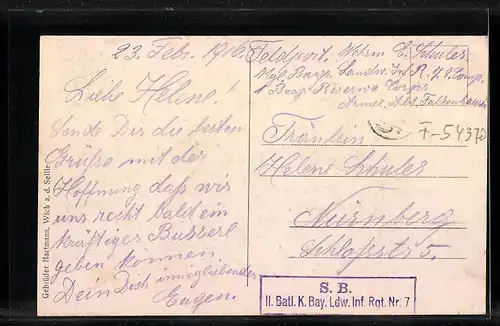 23. Febr. 1916.
Liebe Helene!
Sende Dir die besten
Grüße mit der
Hoffnung daß wir
uns recht bald ein
kräftiges Busserl
geben können.
Dein Dich innigliebender
Eugen.
Feldpost. Wehrm. E. Schuler
Kgl. Bayr. Landw. Inf. R. 7. 8. Comp.
1 Bayr. Reserve Corps
Armee Abt. Falkenhausen
F-54370
Fräulein
Helene Schuler
Nürnberg
Schloßstr 5.
S. B.
II. Batl. K. Bay. Ldw. Inf. Rgt. Nr. 7
Gebrüder Hartmann, Wich a. d. Seille